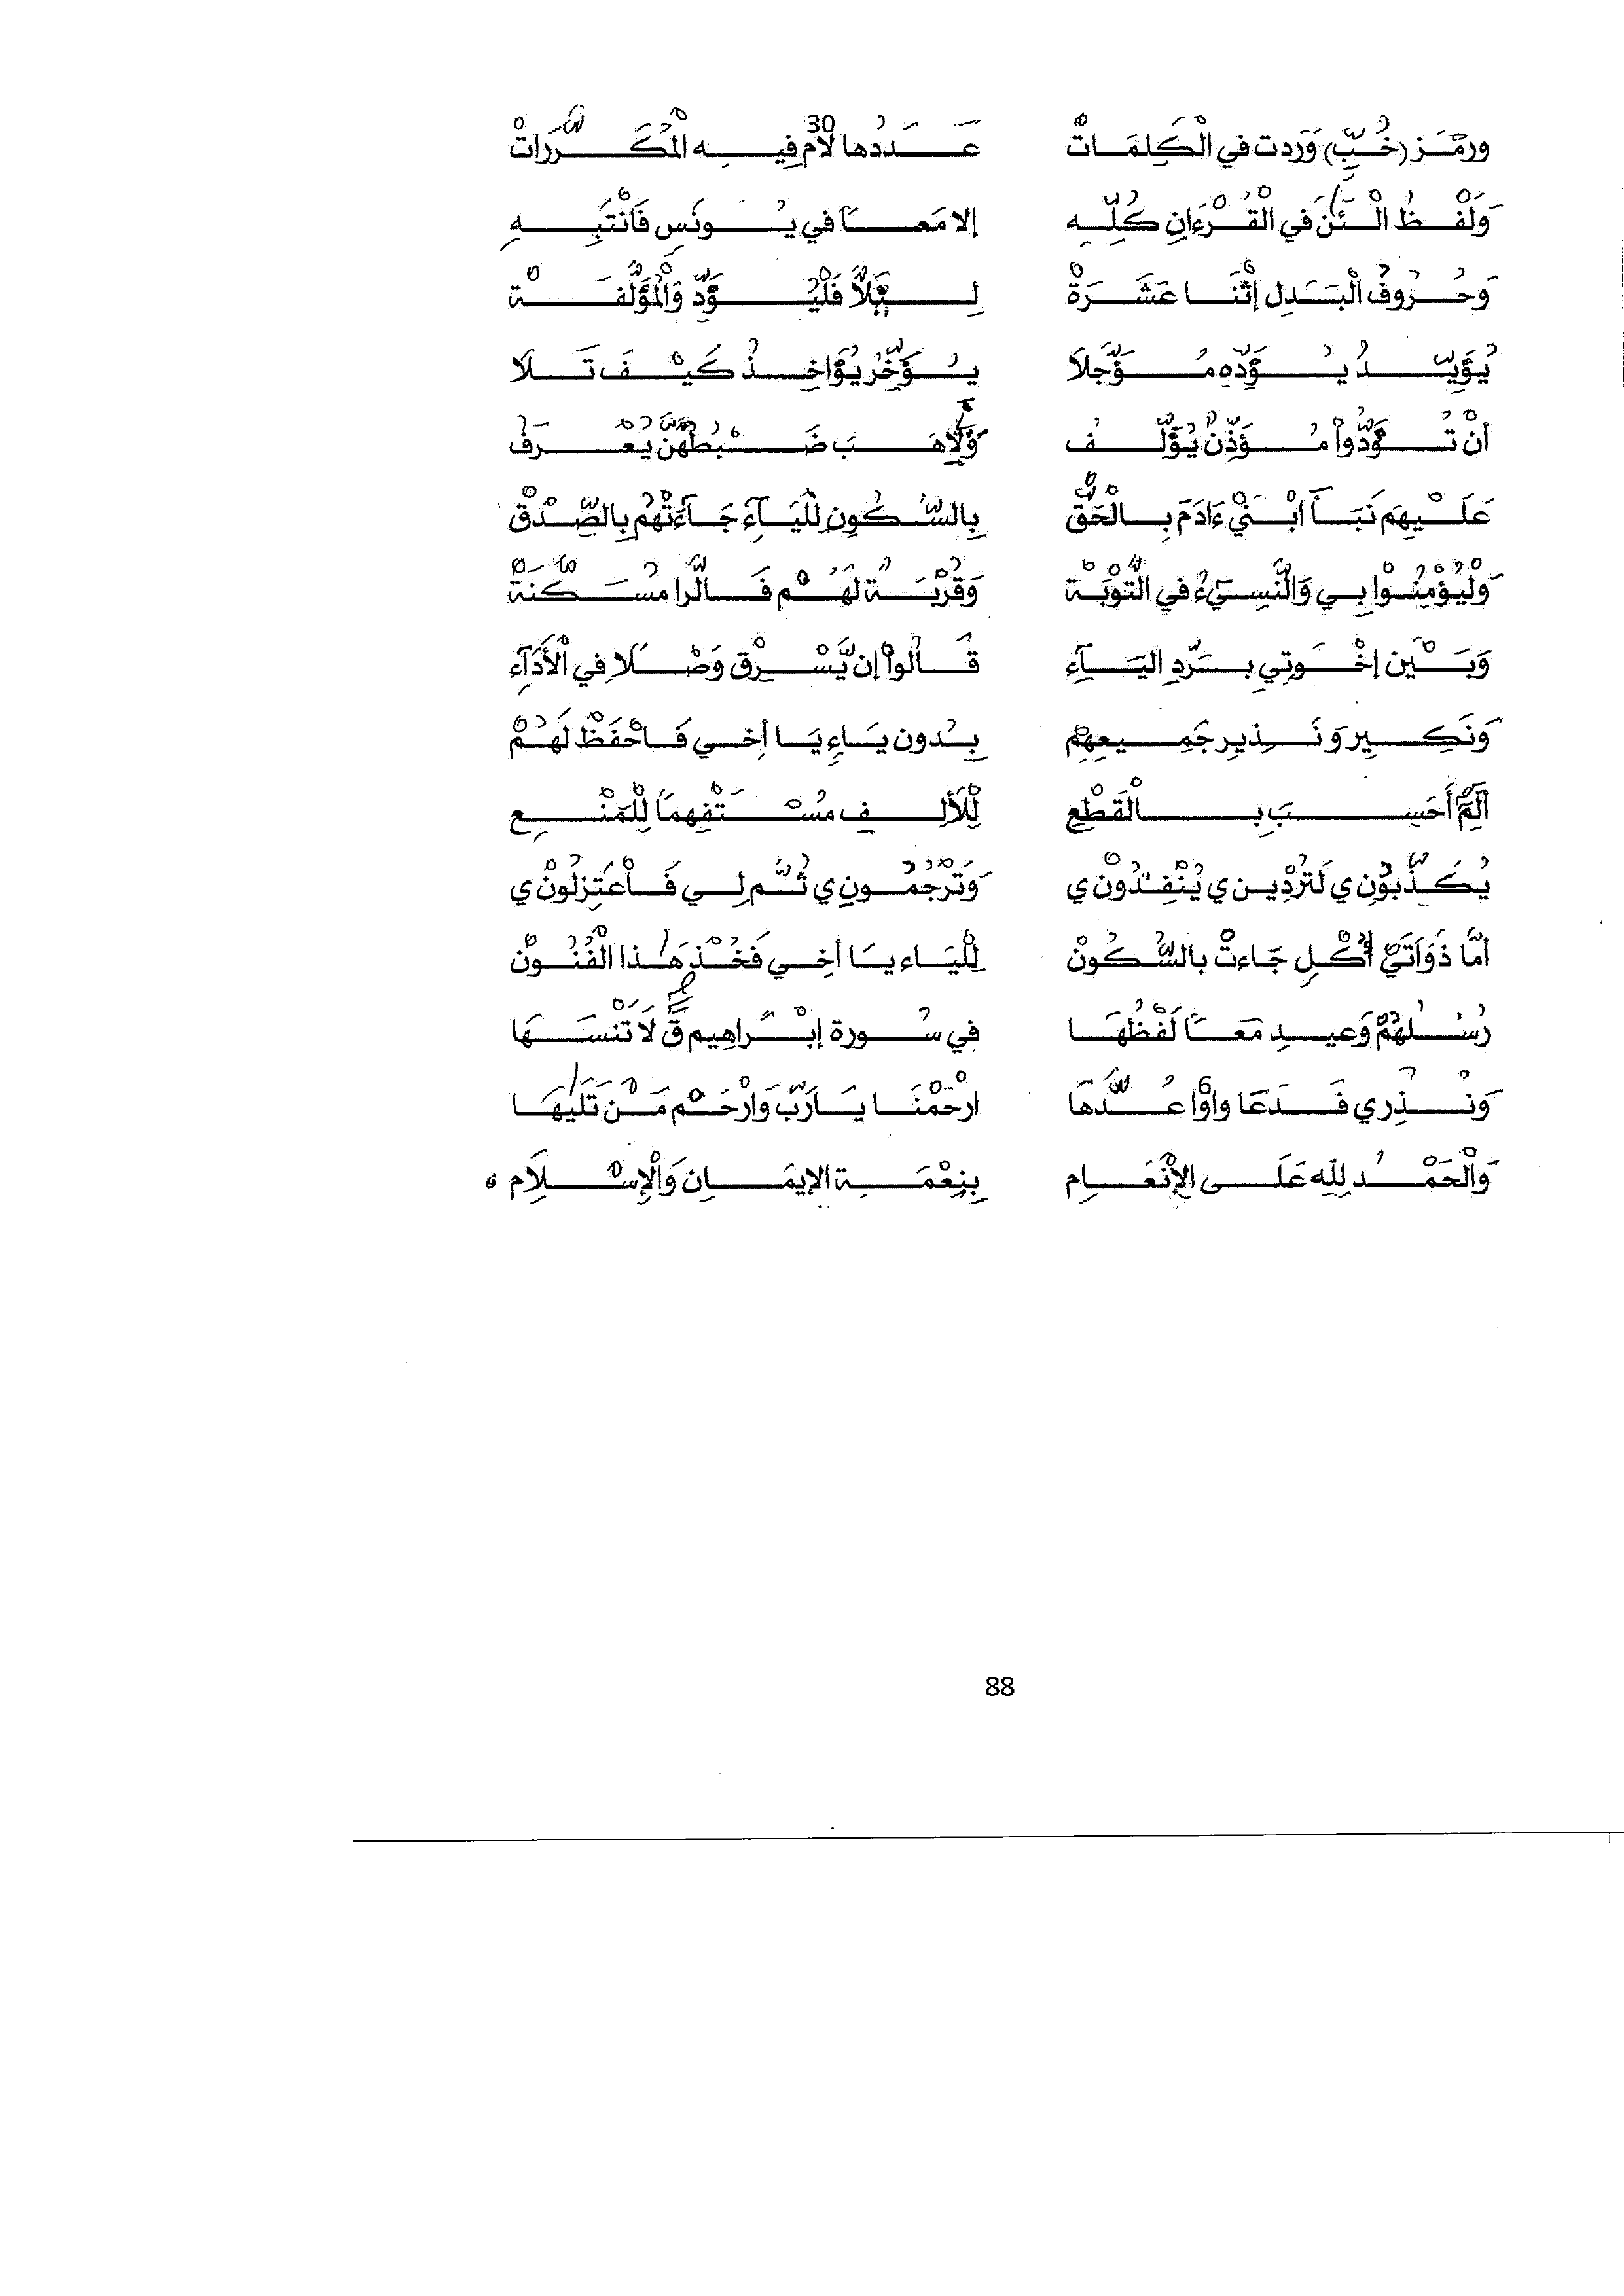 ورَمْز (خُبِّ) وَرَدت في الْكَلِمَاتْ عَدَدُها لَامٌ 30 فِيهِ الْمُكَرَّرَاتْ
وَلَفْظُ الْـَٔنَ في الْقُرْءَانِ كُلِّهِ إلا مَعًا في يُونَسٍ فَانْتَبِهِ
وَحُرُوفُ الْبَدَلِ إثْنَا عَشَرَةْ لِئَلَّا فَلْيُؤَدِّ وَالْمُؤَلَّفَةْ
يُؤَيِّدُ يُؤَدِّهِ مُؤَجَّلَا يُؤَخِّرُ يُؤَاخِذُ كَيْفَ تَلَا
أنْ تُؤَدُّواْ مُؤَذِّنٌ يُؤَلِّف وَلِأَهَبَ ضَبْطُهُنَّ يُعْرَفْ
عَلَيْهِمْ نَبَأَ ابْنَيْ ءَادَمَ بِالْحَقْ بِالسُّكُونِ لِلْيَآءِ جَآءَتْهُمْ بِالصِّدْقْ
وَلْيُؤْمِنُواْ بِي وَالنَّسِيٓءُ في التَّوْبَةْ وَقُرْبَةٌ لَهُمْ فَالرَّا مُسَكَّنَةْ
وَبَيْنَ إخْوَتِي بِسَرْدِ اليَآءِ قَالُواْ إن يَّسْرِقْ وَصْلًا فِي الْأَدَآءِ
وَنَكِيرِ وَنَذِيرِ جَمِيعِهِمْ بِدُونِ يَاءٍ يَا أخِي فَاحْفَظْ لَهُمْ
آلَمِّ أَحَسِبَ بِالْقَطْعِ لِلْأَلِفِ مُسْتَفْهِمًا لِلْمَنْعِ
يُكَذِّبُونِ ي لَتُرْدِينِ ي يُنْقِذُونِ ي وَتَرْجُمُونِ ي ثُمَّ لِي فَاعْتَزِلُونِ ي
أمَّا ذَوَاتَيْ أُكُلٍ جَاءتْ بالسُّكُونْ لِلْيَاء يَا أخِي فَخُذْ هَذا الْفُنُونْ
رُسُلُهُمْ وَعِيدِ مَعًا لَفْظُهَا في سُورة إبْرَاهِيم قَ لَا تَنْسَهَا
وَنُذُرِي فَدَعَا واوًا عُدَّهَا ارْحَمْنَا يَا رَبِّ وَارْحَمْ مَنْ تَلَيْهَا
وَالْحَمْدُ لِلهِ عَلَى الإنْعَامِ بِنِعْمَةِ الإيمَانِ وَالْإسْلَامِ ه
88